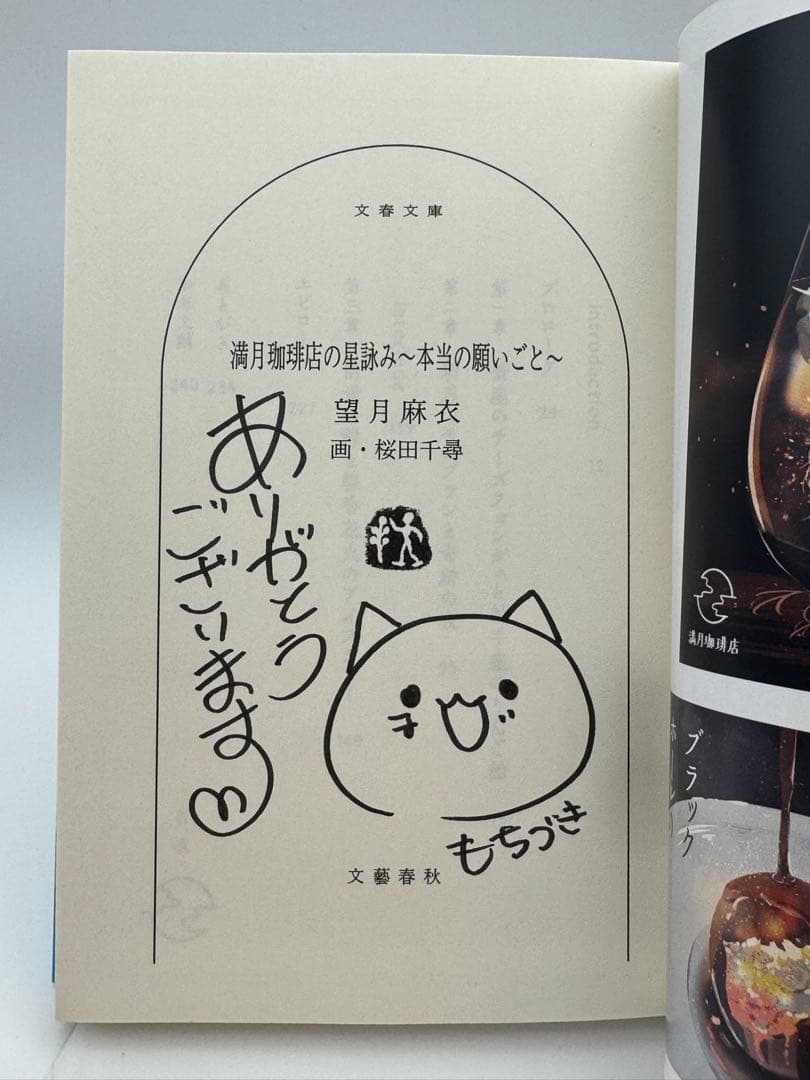 文春文庫
満月珈琲店の星詠み～本当の願いごと～
望月麻衣
画・桜田千尋
ありがとう
ございます
もちづき
文藝春秋
満月珈琲店
ブラック